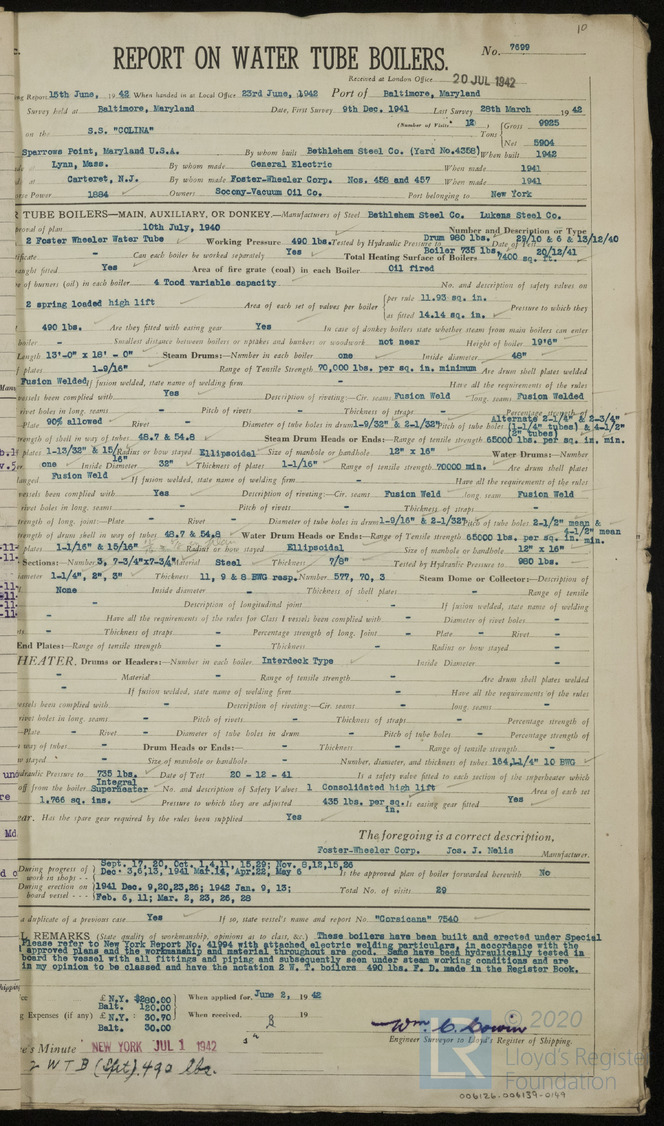 10
REPORT ON WATER TUBE BOILERS. No. 7699
Received at London Office 20 JUL 1942
ng Report 15th June, 1942 When handed in at Local Office 23rd June, 1942 Port of Baltimore, Maryland
Survey held at Baltimore, Maryland Date, First Survey 9th Dec. 1941 Last Survey 28th March 1942
on the S.S. "COLINA" (Number of Visits 12) Tons { Gross 9925
Net 5904
Sparrows Point, Maryland U.S.A. By whom built Bethlehem Steel Co. (Yard No.4358) When built 1942
at Lynn, Mass. By whom made General Electric When made 1941
at Carteret, N.J. By whom made Foster-Wheeler Corp. Nos. 458 and 457 When made 1941
Power 1884 Owners Socony-Vacuum Oil Co. Port belonging to New York
R TUBE BOILERS—MAIN, AUXILIARY, OR DONKEY.—Manufacturers of Steel Bethlehem Steel Co. Lukens Steel Co.
of plan 10th July, 1940 Number and Description or Type
2 Foster Wheeler Water Tube Working Pressure 490 lbs. Tested by Hydraulic Pressure to Drum 980 lbs. Date of Test 29/10 & 6 & 13/12/40
Boiler 735 lbs. 20/12/41
- Can each boiler be worked separately Yes Total Heating Surface of Boilers 7400 sq. ft.
fitted Yes Area of fire grate (coal) in each Boiler Oil fired
of burners (oil) in each boiler 4 Todd variable capacity No. and description of safety valves on
2 spring loaded high lift Area of each set of valves per boiler { per rule 11.93 sq. in.
as fitted 14.14 sq. in. Pressure to which they
490 lbs. Are they fitted with easing gear Yes In case of donkey boilers state whether steam from main boilers can enter
boiler - Smallest distance between boilers or uptakes and bunkers or woodwork not near Height of boiler 19'6"
Length 13'-0" x 18' - 0" Steam Drums:—Number in each boiler one Inside diameter 48"
plates 1-9/16" Range of Tensile Strength 70,000 lbs. per sq. in. minimum Are drum shell plates welded
Fusion Welded If fusion welded, state name of welding firm - Have all the requirements of the rules
vessels been complied with Yes Description of riveting:—Cir. seams Fusion Weld long. seams Fusion Welded
rivet holes in long. seams - Pitch of rivets - Thickness of straps - Percentage strength of
Plate 90% allowed Rivet - Diameter of tube holes in drum 1-9/32" & 2-1/32" Pitch of tube holes Alternate 2-1/4" & 2-3/4"
(1-1/4" tubes) & 4-1/2"
(2" tubes)
strength of shell in way of tubes 48.7 & 54.8 Steam Drum Heads or Ends:—Range of tensile strength 65000 lbs. per sq. in. min.
plates 1-13/32" & 15/16" Radius or how stayed Ellipsoidal Size of manhole or handhole 12" x 16" Water Drums:—Number
one Inside Diameter 32" Thickness of plates 1-1/16" Range of tensile strength 70000 min. Are drum shell plates
Fusion Weld If fusion welded, state name of welding firm - Have all the requirements of the rules
vessels been complied with Yes Description of riveting:—Cir. seams Fusion Weld long. seam Fusion Weld
rivet holes in long. seams - Pitch of rivets - Thickness of straps -
strength of long. joint:—Plate - Rivet - Diameter of tube holes in drum 1-9/16" & 2-1/32" Pitch of tube holes 2-1/2" mean &
4-1/2" mean
strength of drum shell in way of tubes 48.7 & 54.8 Water Drum Heads or Ends:—Range of Tensile strength 65000 lbs. per sq. in. min.
plates 1-1/16" & 15/16" Radius or how stayed Ellipsoidal Size of manhole or handhole 12" x 16"
Sections:—Number 3, 7-3/4"x7-3/4" Material Steel Thickness 7/8" Tested by Hydraulic Pressure to 980 lbs.
diameter 1-1/4", 2", 3" Thickness 11, 9 & 8 BWG resp. Number 577, 70, 3 Steam Dome or Collector:—Description of
None Inside diameter - Thickness of shell plates - Range of tensile
Description of longitudinal joint - If fusion welded, state name of welding
Have all the requirements of the rules for Class I vessels been complied with - Diameter of rivet holes -
Thickness of straps - Percentage strength of long. Joint - Plate - Rivet -
End Plates:—Range of tensile strength - Thickness - Radius or how stayed -
HEATER. Drums or Headers:—Number in each boiler Interdeck Type Inside Diameter -
- Material - Range of tensile strength - Are drum shell plates welded
If fusion welded, state name of welding firm - Have all the requirements of the rules
vessels been complied with - Description of riveting:—Cir. seams - long. seams -
rivet holes in long. seams - Pitch of rivets - Thickness of straps - Percentage strength of
Plate - Rivet - Diameter of tube holes in drum - Pitch of tube holes - Percentage strength of
way of tubes - Drum Heads or Ends:— Thickness - Range of tensile strength -
stayed - Size of manhole or handhole - Number, diameter, and thickness of tubes 164, 1-1/4" 10 BWG
Hydraulic Pressure to 735 lbs. Date of Test 20 - 12 - 41 Is a safety valve fitted to each section of the superheater which
off from the boiler Integral Superheater No. and description of Safety Valves 1 Consolidated high lift Area of each set
1.766 sq. ins. Pressure to which they are adjusted 435 lbs. per sq. in. Is easing gear fitted Yes
Gear. Has the spare gear required by the rules been supplied Yes
The foregoing is a correct description,
Foster-Wheeler Corp. Jos. J. Nelis Manufacturer.
During progress of work in shops - - Sept. 17, 20, Oct. 1,4,11, 15,29; Nov. 8,12,15,26
Dec. 3,6,13, 1941 Mar.14, Apr.22, May 6 Is the approved plan of boiler forwarded herewith No
During erection on board vessel - - - 1941 Dec. 9,20,23,26; 1942 Jan. 9, 13;
Feb. 6, 11; Mar. 2, 23, 26, 28 Total No. of visits 29
a duplicate of a previous case Yes If so, state vessel's name and report No. "Corsicana" 7540
REMARKS (State quality of workmanship, opinions as to class, &c.) These boilers have been built and erected under Special
Please refer to New York Report No. 41994 with attached electric welding particulars, in accordance with the
approved plans and the workmanship and material throughout are good. Same have been hydraulically tested in
board the vessel with all fittings and piping and subsequently seen under steam working conditions and are
in my opinion to be classed and have the notation 2 W. T. boilers 490 lbs. F. D. made in the Register Book.
£ N.Y. $280.00
Balt. 120.00 When applied for, June 2, 1942
Expenses (if any) £ N.Y. 30.70
Balt. 30.00 When received, 19
Wm. C. Cowin
Engineer Surveyor to Lloyd's Register of Shipping.
's Minute NEW YORK JUL 1 1942
2 W T B (Spt). 490 lbs.
© 2020
LR
Lloyd's Register
Foundation
006126-006139-0149